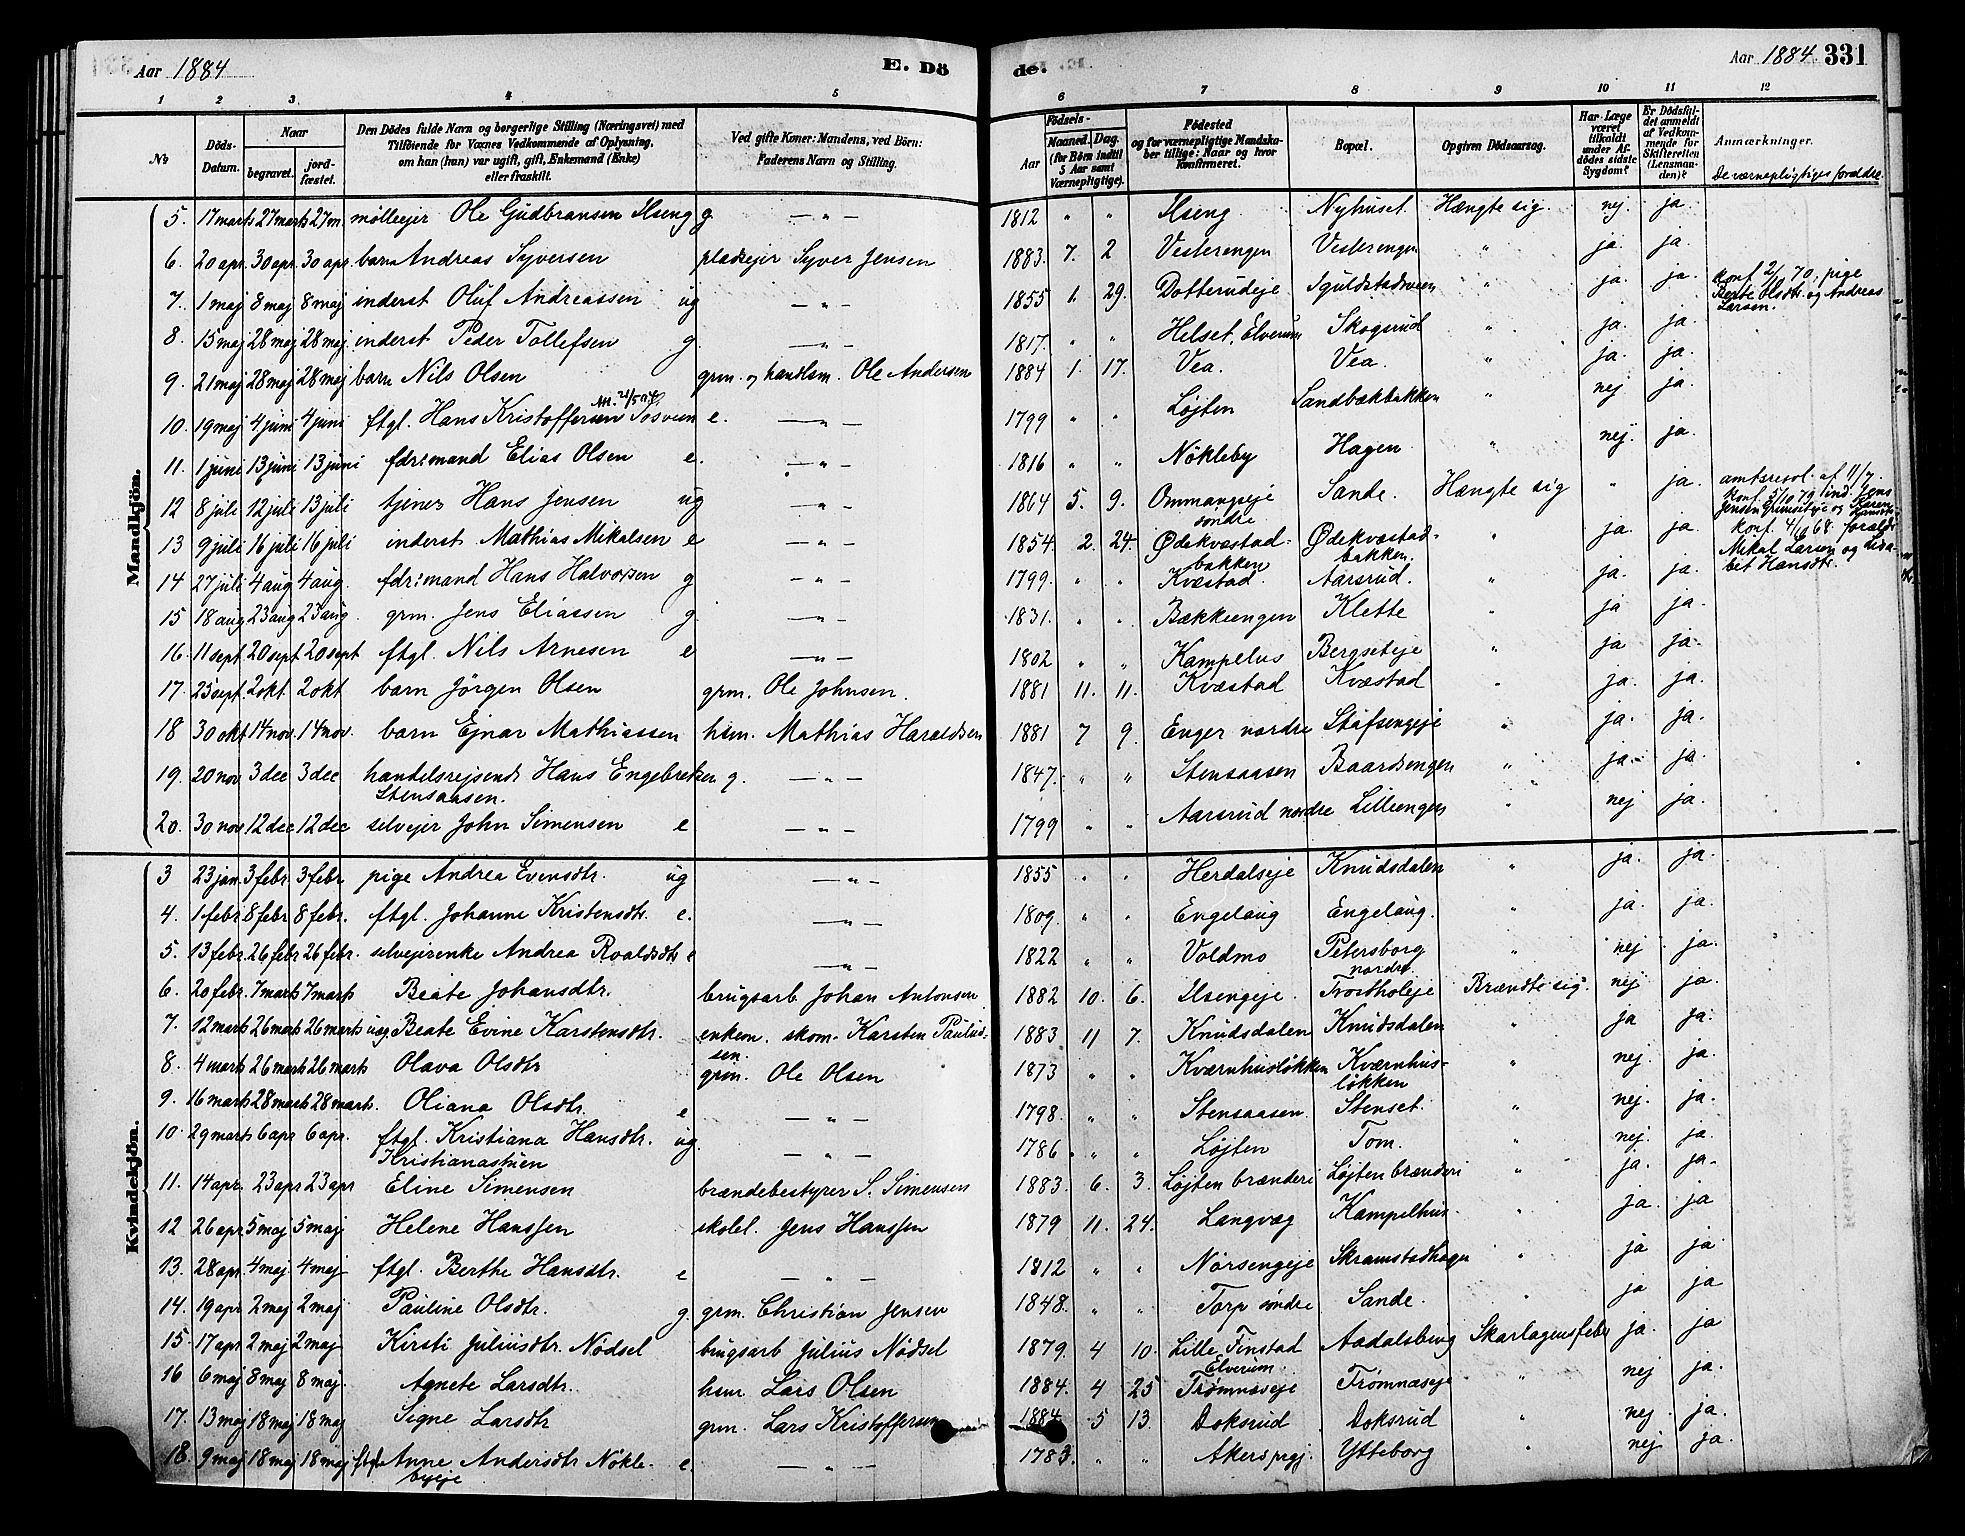 Aar 1884 E. Dö de. Aar 1884 331
1 2 3 4 5 6 7 8 9 10 11 12
No
Döds-Datum.
Naar
begravet.
jord-fæstet.
Den Dödes fulde Navn og borgerlige Stilling (Næringsvei) med
Tilföiende for Voxnes Vedkommende af Oplysning,
om han (hun) var ugift, gift, Enkemand (Enke)
eller fraskilt.
Ved gifte Koner: Mandens, ved Börn:
Faderens Navn og Stilling.
Födsels-
Aar
Maaned. Dag.
(for Börn indtil
5 Aar samt
Værnepligtige).
Födested
og for værnepligtige Mandska-
ber tillige: Naar og hvor
konfirmeret.
Bopæl.
Opgiven Dödsaarsag.
Har Læge
været
tilkaldt
under Af-
dödes sidste
Sygdom?
Er Dödsfal-
det anmeldt
af Vedkom-
mende for
Skifteretten
(Lensman-
den)?
Anmærkninger.
De værnepligtiges forældre.
Mandkjön.
5. 17 marts 27 marts 27 m. mölleejer Ole Gudbransen Ilseng g — " — 1812 " " Ilseng. Nyhuset. Hængte sig. nej. ja.
6. 20 apr. 30 apr. 30 apr. barn Andreas Syversen pladsejer Syver Jensen 1883. 7. 2 Vesterengen Vesterengen " ja. ja.
7. 1 maj 8 maj 8 maj inderst Oluf Andreassen ug — " — 1855 1. 29. Dotterudeje Sguldstadsveen " ja. ja. konf 2/10 70. pige
Berte Olsdtr. og Andreas
Larsen.
8. 15 maj 28 maj 28 maj. inderst Peder Tollefsen g. — " — 1817. " " Helset, Elverum Skogsrud " ja. ja.
9. 21 maj 28 maj 28 maj barn Nils Olsen grm. og handlsm. Ole Andersen 1884 1. 17. Vea. Vea. " ja. ja.
10. 19 maj 4 juni 4 juni ftgl. Hans Kristoffersen Sosveen e. — " — 1799 " " Løjten Sandbækbakken " nej ja.
11. 1 juni 13 juni 13 juni fdr:mand Elias Olsen e. — " — 1816 " " Nökleby Hagen. " nej. ja.
12 8 juli 12 juli 13 juli tjener Hans Jensen ug — " — 1864 5. 9. Ommangseje
søndre Sande. Hængte sig " ja. amtsresol. af 11/7.
konf. 5/10 79. ind. Jens
Jensen Grimseteje og Karen
Hansdtr.
13 9 juli 16 juli 16 juli inderst Mathias Mikalsen e — " — 1854. 2. 24. Ødekvæstad-
bakken Ødekvæstad-
bakken. " ja. ja. konf. 4/10 68. foræld:
Mikal Larsen og Lisa-
bet Hansdtr.
14 27 juli 4 aug 4 aug. fdr:mand Hans Halvorsen g — " — 1799. " " Kvæstad. Aarsrud. " ja. ja.
15 18 aug 23 aug 23 aug. grm. Jens Eliassen g — " — 1831. " " Bækkeengen Klette " ja ja.
16. 11 sept 20 sept 20 sept ftgl. Nils Arnesen e — " — 1802 " " Kampelus Bergseteje " ja ja.
17. 25 sept. 2 okt 2 okt barn Jörgen Olsen grm. Ole Johnsen. 1881 11. 11. Kvæstad Kvæstad " ja. ja.
18 30 okt 14 nov. 14 nov. barn Ejnar Mathiassen hsm. Mathias Haraldsen 1881 7 9. Enger nordre Stafsengeje " ja. ja.
19. 20 nov 3 dec 3 dec handelsrejsende Hans Engebretsen g. — " — 1847. " " Stensaasen Baardsengen " ja. ja.
Stensaasen.
20. 30 nov 12 dec 12 dec selvejer John Simensen e — " — 1799 " " Aarsrud nordre Lilleengen " nej ja.
Kvindekjön.
3 23 jan. 3 febr. 3 febr pige Andrea Evensdtr. ug — " — 1855 " " Herdalseje Knudsdalen " ja. ja.
4. 1 febr 8 febr 8 febr. ftgl. Johanne Kristensdtr. e. — " — 1809. " " Engelaug Engelaug. " ja. ja.
5. 13 febr. 26 febr 26 febr. selvejerenke Andrea Roaldsdtr e — " — 1822 " " Voldmo Petersborg
nordre. " nej ja.
6. 20 febr. 7 marts 7 marts Beate Johansdtr. brugsarb Johan Antonsen 1882 10. 6. Ilsengeje. Trostholeje Brændte sig. nej ja.
7. 12 marts 26 marts 26 marts uæg. Beate Evine Karstensdtr. enkem. skom. Karsten Paulid-
sen. 1883 11 7. Knudsdalen Knudsdalen " ja ja.
8. 4 marts 26 marts 26 marts Olava Olsdtr grm. Ole Olsen 1873 " " Kværnhusløkken Kværnhus-
løkken " nej. ja.
9. 16 marts 28 marts 28 marts. Oliana Olsdtr. e — " — 1798. " " Stensaasen. Stenset. " nej. ja.
10. 29 marts 6 apr 6 apr. ftgl. Kristiana Hansdtr. ug. — " — 1786. " " Løjten Tom. " nej. ja.
Kristianastuen
11. 14 apr. 23 apr 23 apr Eline Simensen brændebestyrer S. Simensen 1883. 6. 3. Løjten brænderi Løjten brænderi " ja. ja.
12 26 apr. 5 maj 5 maj Helene Hanssen skolel. Jens Hanssen 1879 11. 24. Langvag Kampelhus. " ja. ja
13. 28 apr. 4 maj 4 maj ftgl. Berthe Hansdtr. e — " — 1812 " " Nørsengeje Skramstadhagen " ja ja
14. 19 apr 2 maj 2 maj Pauline Olsdtr. g. grm. Christian Jensen 1848. " " Torp søndre Sande. " ja ja
15. 17 apr 2 maj 2 maj Kirsti Juliusdtr. Nødsel brugsarb Julius Nødsel 1879. 4 10. Lille Finstad
Elverum. Aadalsbrug Skarlagensfeber ja. ja
16 6 maj 8 maj 8 maj. Agnete Larsdtr. hsm Lars Olsen 1884. 4 25 Trømnæseje Trømnæseje " nej ja.
17. 13 maj 18 maj 18 maj Signe Larsdtr grm. Lars Kristoffersen 1884. 5 13. Doksrud Doksrud " nej ja.
18. 9 maj 18 maj 18 maj ftgl Anne Andersdtr Nökle-
byeje e. — " — 1783. " " Akers prgj. Ytteborg " nej. ja.